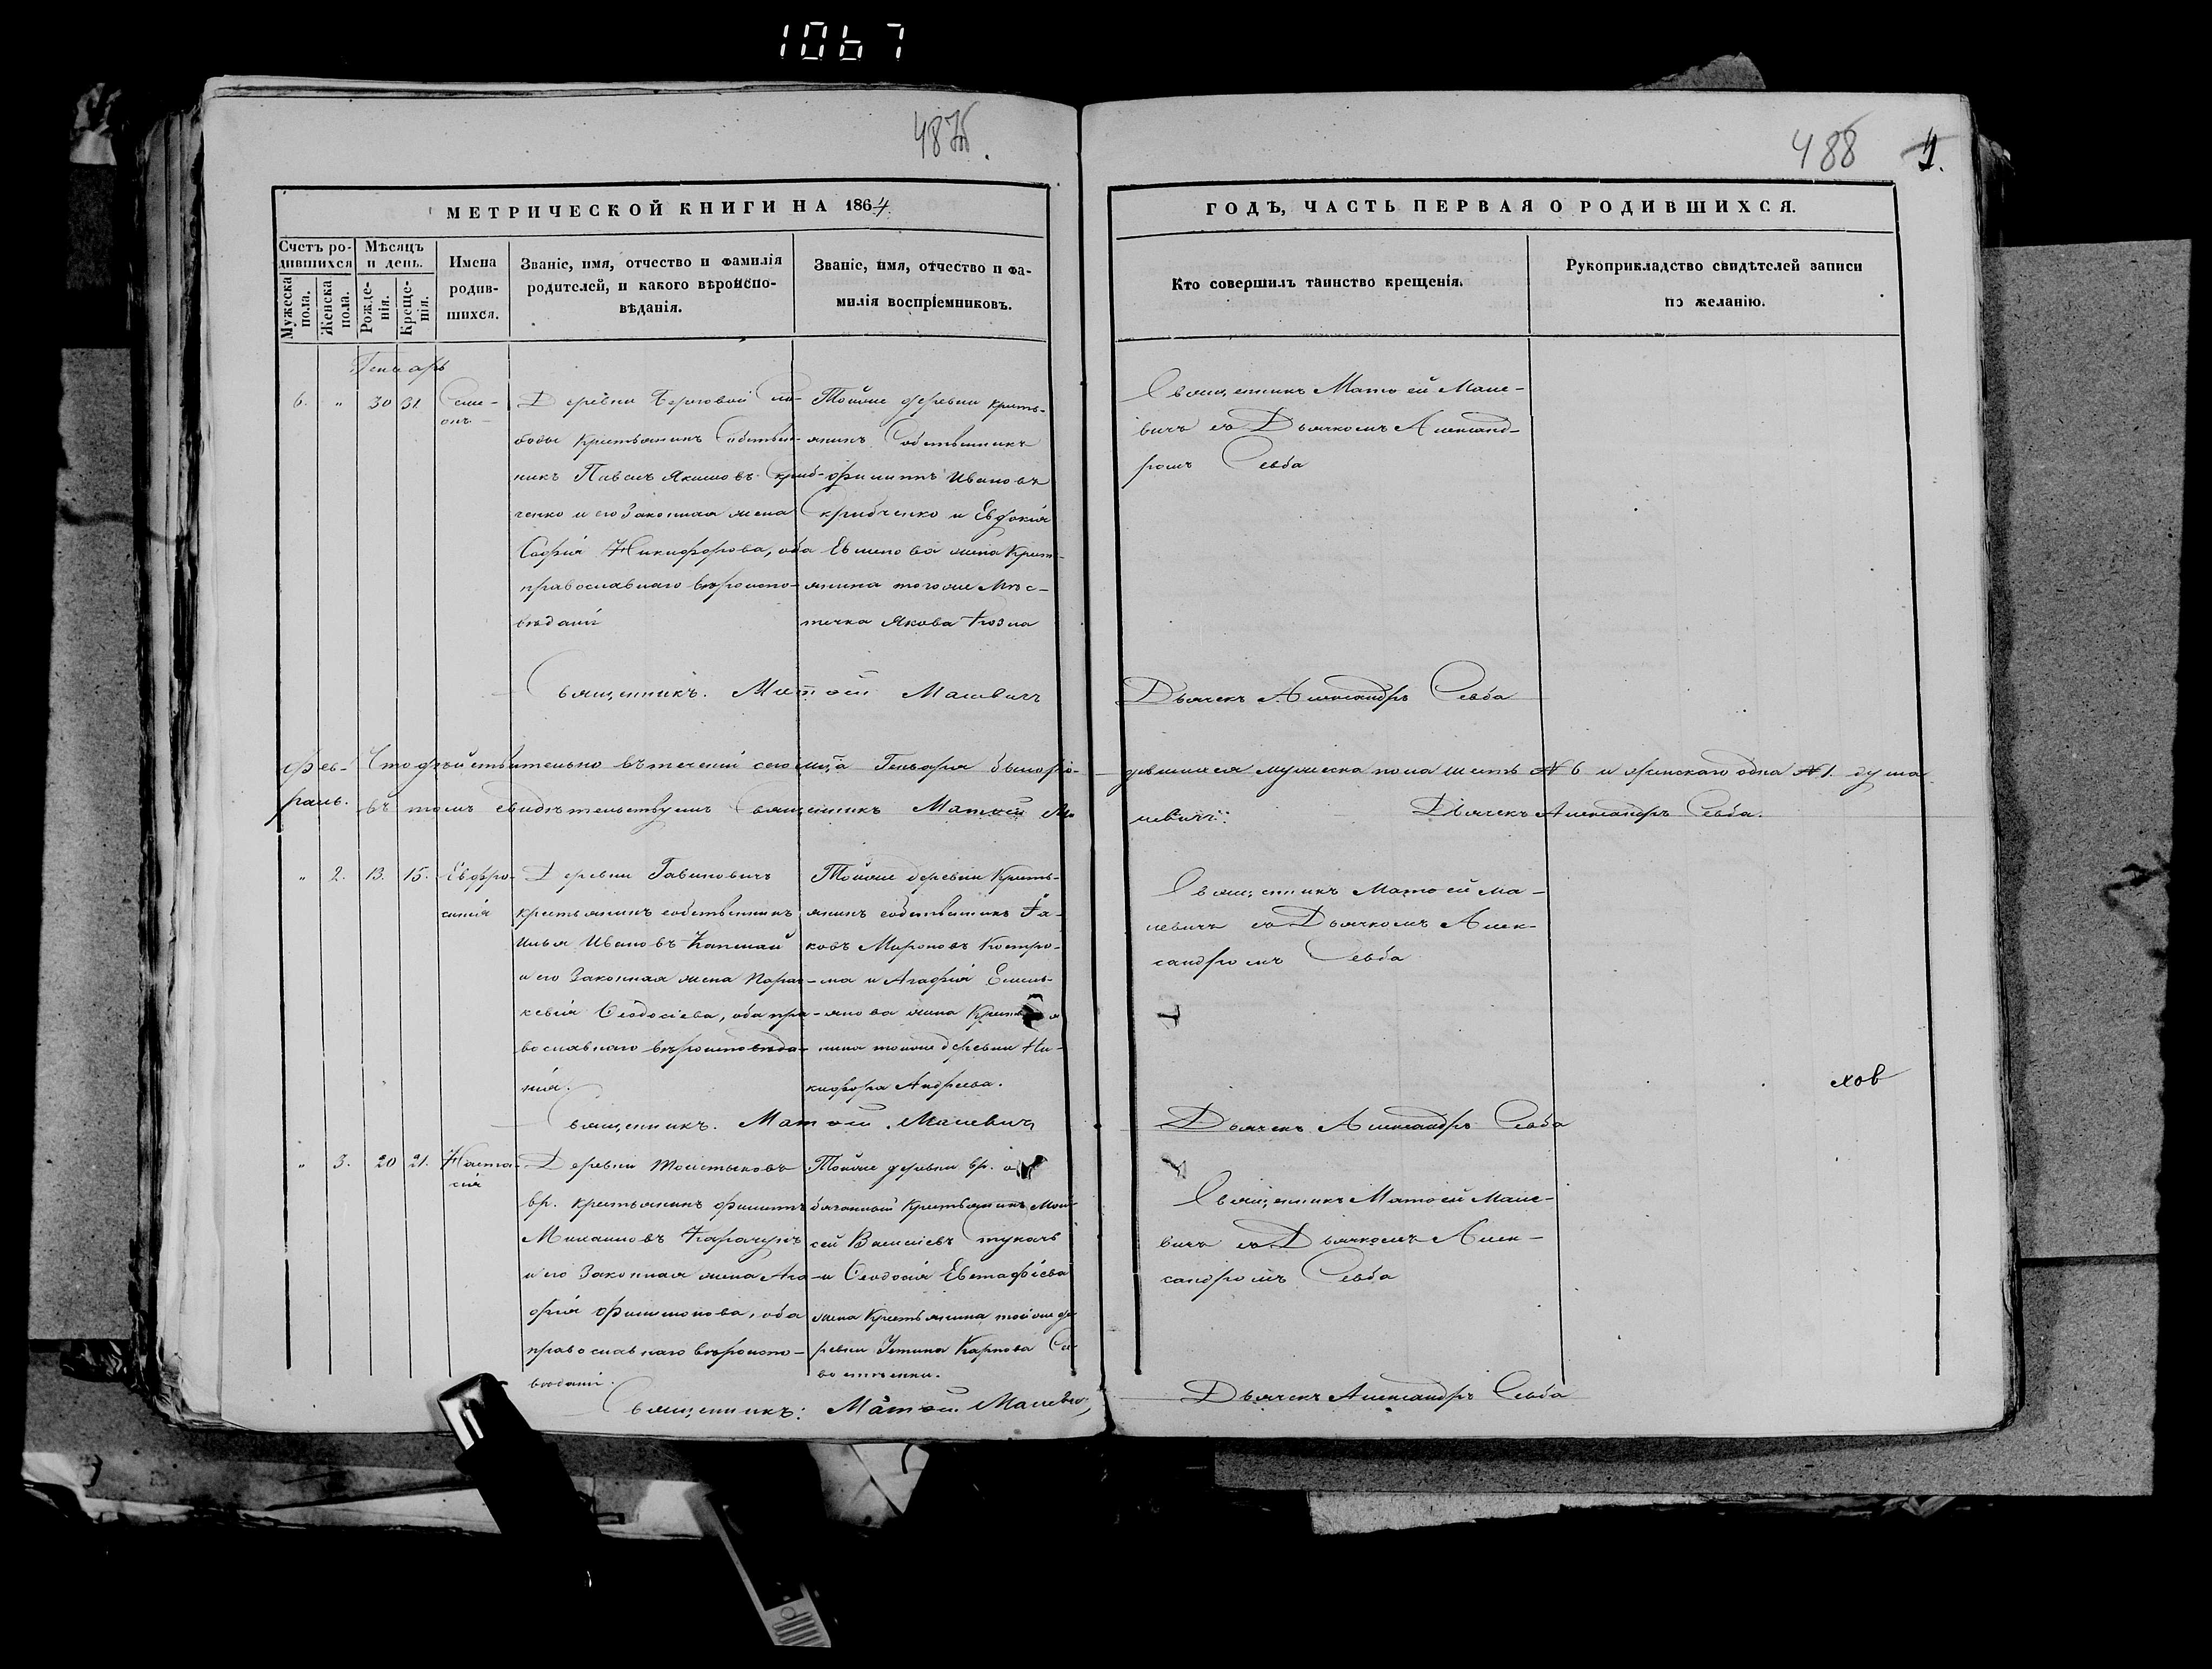 1067
487
488
МЕТРИЧЕСКОЙ КНИГИ НА 1864
Счетъ ро-
дившихся
Мѣсяцъ
и день.
Мужеска
пола.
Женска
пола.
Рожде-
нія.
Креще-
нія.
Имена
родив-
шихся.
Званіе, имя, отчество и фамилія
родителей, и какого вѣроиспо-
вѣданія.
Званіе, имя, отчество и фа-
милія воспріемниковъ.
Генварь
6. " 30 31
Симе-
онъ
Деревни Береговой Сло-
боды крестьянинъ Собствен-
никъ Павелъ Якимовъ
ченко и его Законная жена
Софія Никифорова, оба
православнаго вѣроиспо-
вѣданія
Тойже деревни кресть-
янинъ Собственникъ
Филиппъ Ивановъ
и Евдокія
жена Крестъ-
янина того же Мѣс-
течка Якова Козла
Священникъ. Матѳей Малевичъ
Фев-
раль.
Что дѣйствительно въ теченіи сего мца Генваря было ро-
въ томъ свидѣтельствуемъ Священникъ Матѳей Ма
" 2. 13. 15.
Евфро-
синія
Деревни Гавиновичъ
крестьянинъ собственникъ
Илья Ивановъ
и его Законная жена Парас-
кевія Ѳеодосіева, оба пра-
вославнаго вѣроисповѣда-
нія.
Тойже деревни Кресть-
янинъ собственникъ Іа-
ковъ Мироновъ Костро-
ма и Агафія Емель-
янова жена
нина тойже деревни Ни-
кифора Андреева.
Священникъ. Матѳей Малевичъ
" 3. 20 21.
Наста-
сія
Деревни Толстыковъ
вр. крестьянинъ Филиппъ
Михайловъ Карачунъ
и его Законная жена Ага-
фія Филимонова, оба
православнаго вѣроиспо-
вѣданія.
Тойже деревни вр. о
бязанный крестьянинъ Мои
сей Васильевъ
и Ѳеодосія Евстафіева
жена Крестьянина тойже де-
ревни Устина Карпова
Священникъ: Матѳей Малевичъ
ГОДЪ, ЧАСТЬ ПЕРВАЯ О РОДИВШИХСЯ.
Кто совершилъ таинство крещенія.
Рукоприкладство свидѣтелей записи
по желанію.
Священникъ Матѳей Мале-
вичъ съ Дьячкомъ Александ-
ромъ Севба
Дьячекъ Александръ Севба
дившихся мужеска пола шесть № 6 и женскаго одна № 1. душа
левичъ. Дьячекъ Александръ Севба.
Священникъ Матѳей Ма-
левичъ съ Дьячкомъ Алек-
сандромъ Севба
Дьячекъ Александръ Севба
Священникъ Матѳей Мале-
вичъ съ Дьячкомъ Алек-
сандромъ Севба
Дьячекъ Александръ Севба